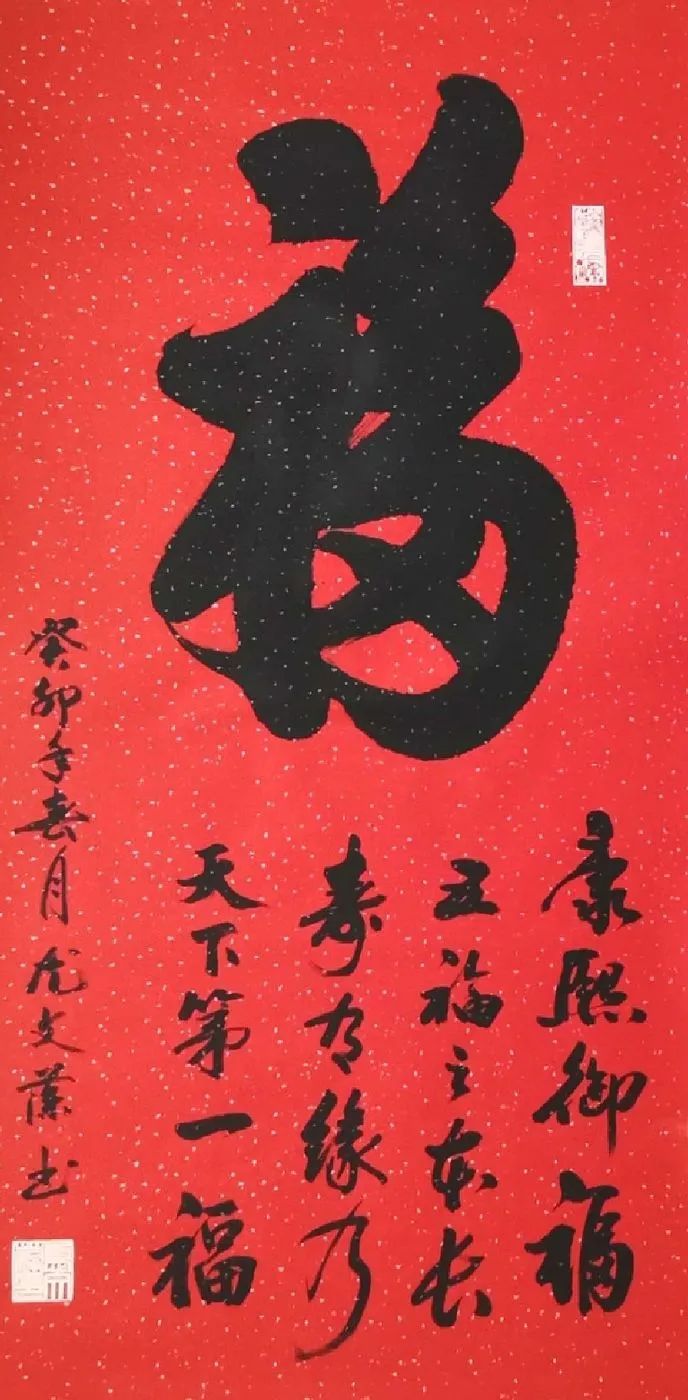 福
康熙御福
五福之本长
寿有缘乃
天下第一福
癸卯年春月文书